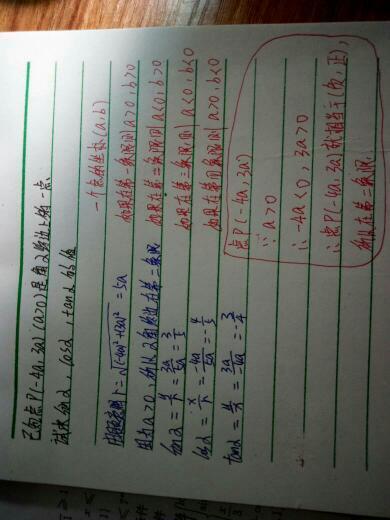 已知点P(-4a,3a)(a>0)是角α终边上的一点
试求sinα,cosα,tanα的值
由题意则r=√(-4a)²+(3a)² =5a
因为a>0,所以α角终边在第二象限
sinα=y/r=3a/5a=3/5
cosα=x/r=-4a/5a=-4/5
tanα=y/x=3a/-4a=-3/4
一个点的坐标(a,b)
如果在第一象限则a>0,b>0
如果在第二象限则a<0,b>0
如果在第三象限则a<0,b<0
如果在第四象限则a>0,b<0
点P(-4a,3a)
∵a>0
∴-4a<0,3a>0
∴点P(-4a,3a)就相当于(负,正),
所以在第二象限